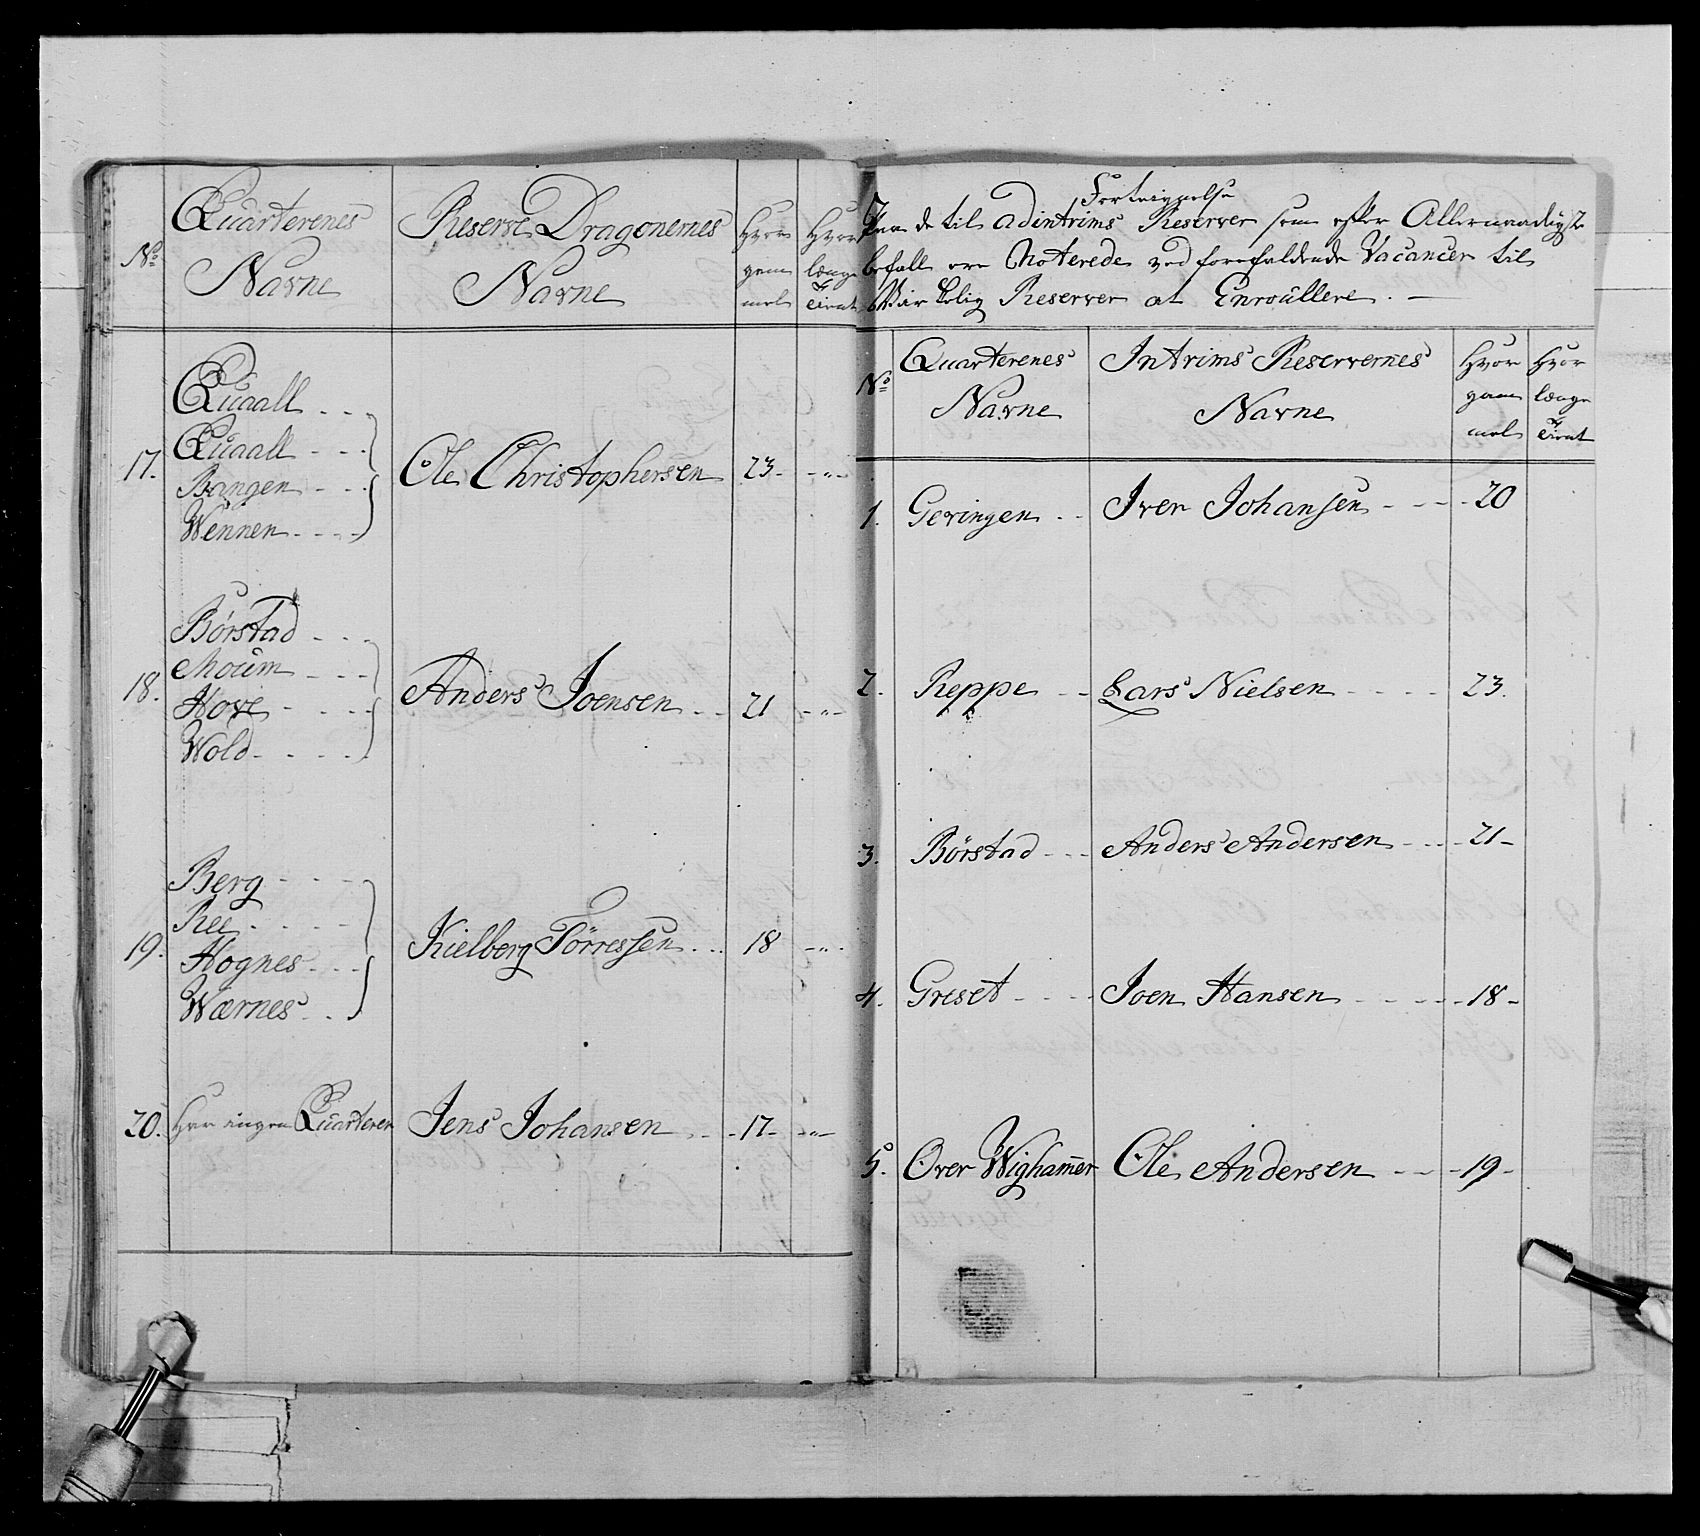 No
Quarterenes
Navne
Reserve Dragonernes
Navne
Hvor
gam
mel
Hvor
længe
tient
17.
Quaall
Quaall
Bangen
Wennen
Ole Christophersen
23
18.
Børstad
Moum
Hove
Wold
Anders Joensen
21
19.
Berg
Ree
Hognes
Wærnes
Kielberg Tørressen
18
20.
Har ingen Quarterer
Jens Johansen
17
Forteignelse
de til adintrims Reserver som efter Allernaadigste
befall ere Noterede ved forefaldende Vacancer til
Virkelig Reserver at Enroullere.
No
Quarterenes
Navne
Intrims Reservernes
Navne
Hvor
gam
mel
Hvor
længe
tient
1. Gevingen Iver Johansen 20
2. Reppe Lars Nielsen 23
3. Børstad Anders Andersen 21
4. Greset Joen Hansen 18
5. Over Wighammer Ole Andersen 19